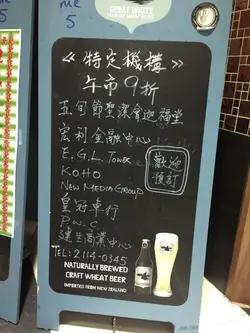 me
5
GREAT WHITE
5
« 特定機構 »
午市9折
五旬節聖潔會迦福堂
宏利金融中心
E.G.L TOWER
KOHO
NEW MEDIA GROUP
皇冠車行
P.W.C
達生商業中心
歡迎
預訂
TEL: 2114-0345
NATURALLY BREWED
CRAFT WHEAT BEER
IMPORTED FROM NEW ZEALAND